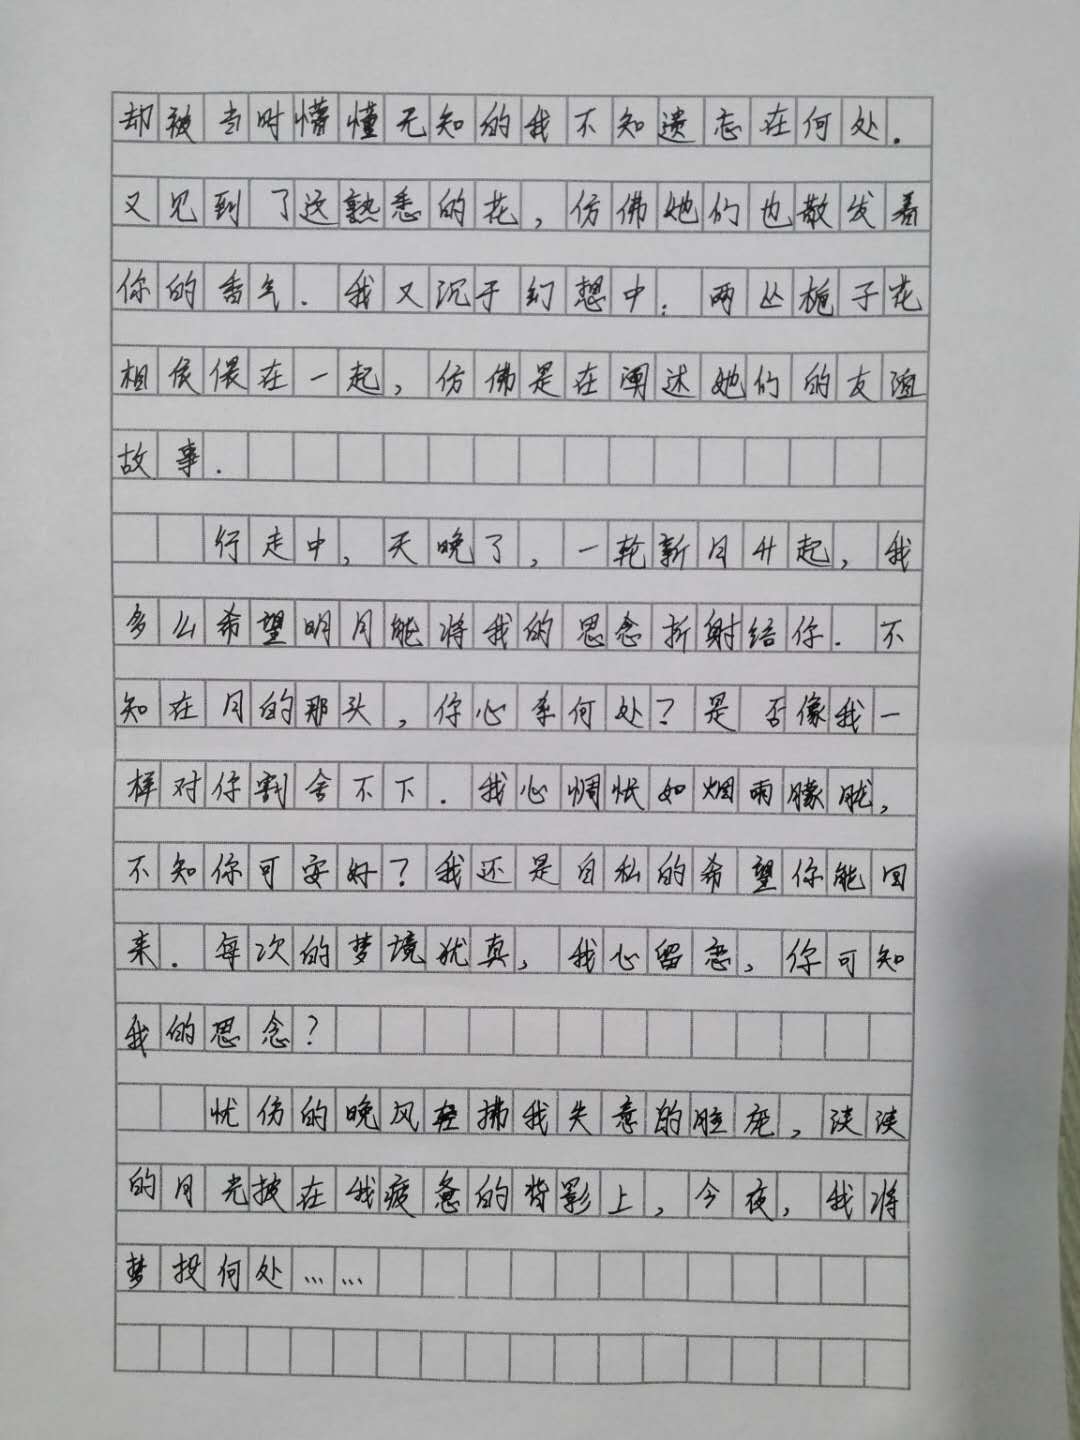 却被当时懵懂无知的我不知遗忘在何处.
又见到了这熟悉的花,仿佛她们也散发着
你的香气.我又沉于幻想中:两丛栀子花
相依偎在一起,仿佛是在阐述她们的友谊
故事.
行走中,天晚了,一轮新月升起,我
多么希望明月能将我的思念折射给你.不
知在月的那头,你心系何处?是否像我一
样对你割舍不下.我心惆怅如烟雨朦胧,
不知你可安好?我还是自私的希望你能回
来.每次的梦境犹真,我心留恋,你可知
我的思念?
忧伤的晚风轻拂我失意的脸庞,淡淡
的月光披在我疲惫的背影上,今夜,我将
梦投何处……